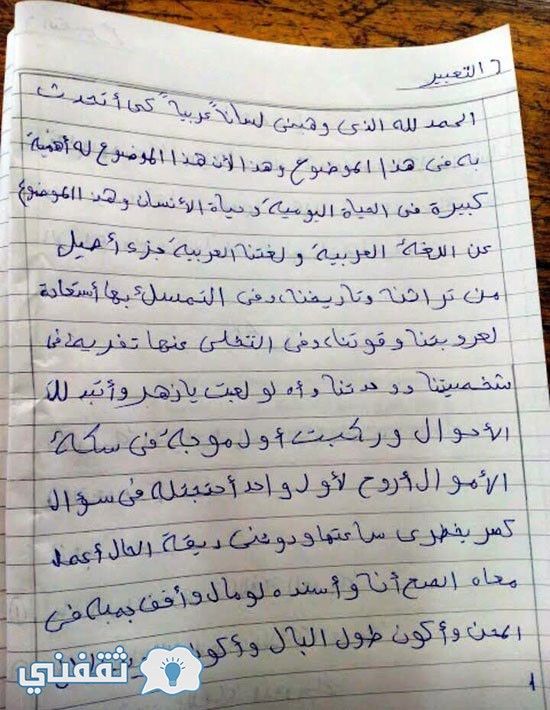 ٢ التعبير
الحمد لله الذى وهبنى لساناً عربياً كى أتحدث
به فى هذا الموضوع وهذا لأن هذا الموضوع له أهمية
كبيرة فى الحياة اليومية وحياة الأنسان وهذا الموضوع
عن اللغة العربية ولغتنا العربية جزء أصيل
من تراثنا وتاريخنا، وفى التمسك بها أستعادة
لعروبتنا وقوتنا، وفى التخلى عنها تفريط فى
شخصيتنا ووحدتنا وأه لو لعبت يازهر وأتبدلت
الأحوال وركبت أول موجة فى سكة
الأموال أروح لأول واحد أحتجتله فى سؤال
كسر بخطرى ساعتها ودوقنى ديقة الحال أعمل
معاه الصح أنا وأسنده لو مال وأقف جمبه فى
المحن وأكون طول البال وأكون
١
ثقفني